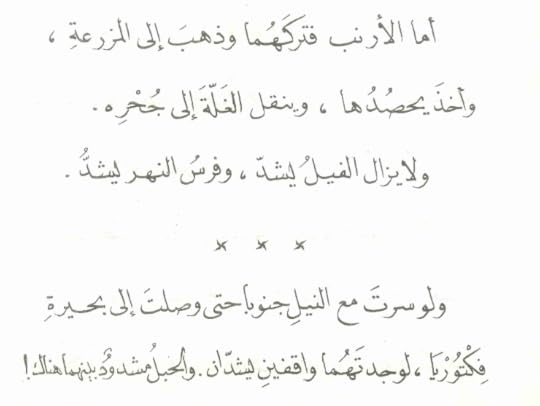 أما الأرنب فتركَهُما وذهبَ إلى المزرعةِ ،
وأخذَ يحصُدُها ، وينقل الغَلّةَ إلى جُحْرِه .
ولا يزال الفيلُ يشدّ ، وفرسُ النهر يشدُّ .
× × ×
ولو سرتَ مع النيلِ جنوبا حتى وصلتَ إلى بحيرةِ
فِكْتُوُرْيَا ، لوجدتَهُما واقفينِ يشدّان . والحبلُ مشدودٌ بينهما هناك !